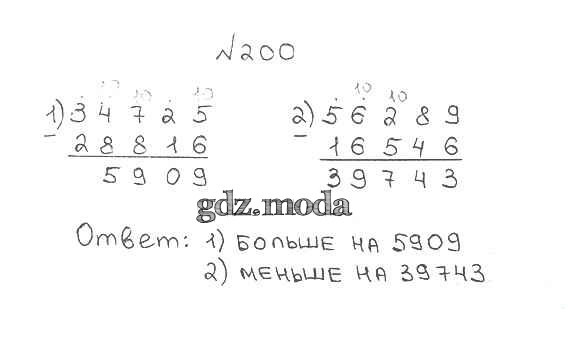 N200
10 10 10
1) 34725
− 28816
5909
10 10
2) 56289
− 16546
39743
gdz.moda
Ответ: 1) БОЛЬШЕ НА 5909
2) МЕНЬШЕ НА 39743